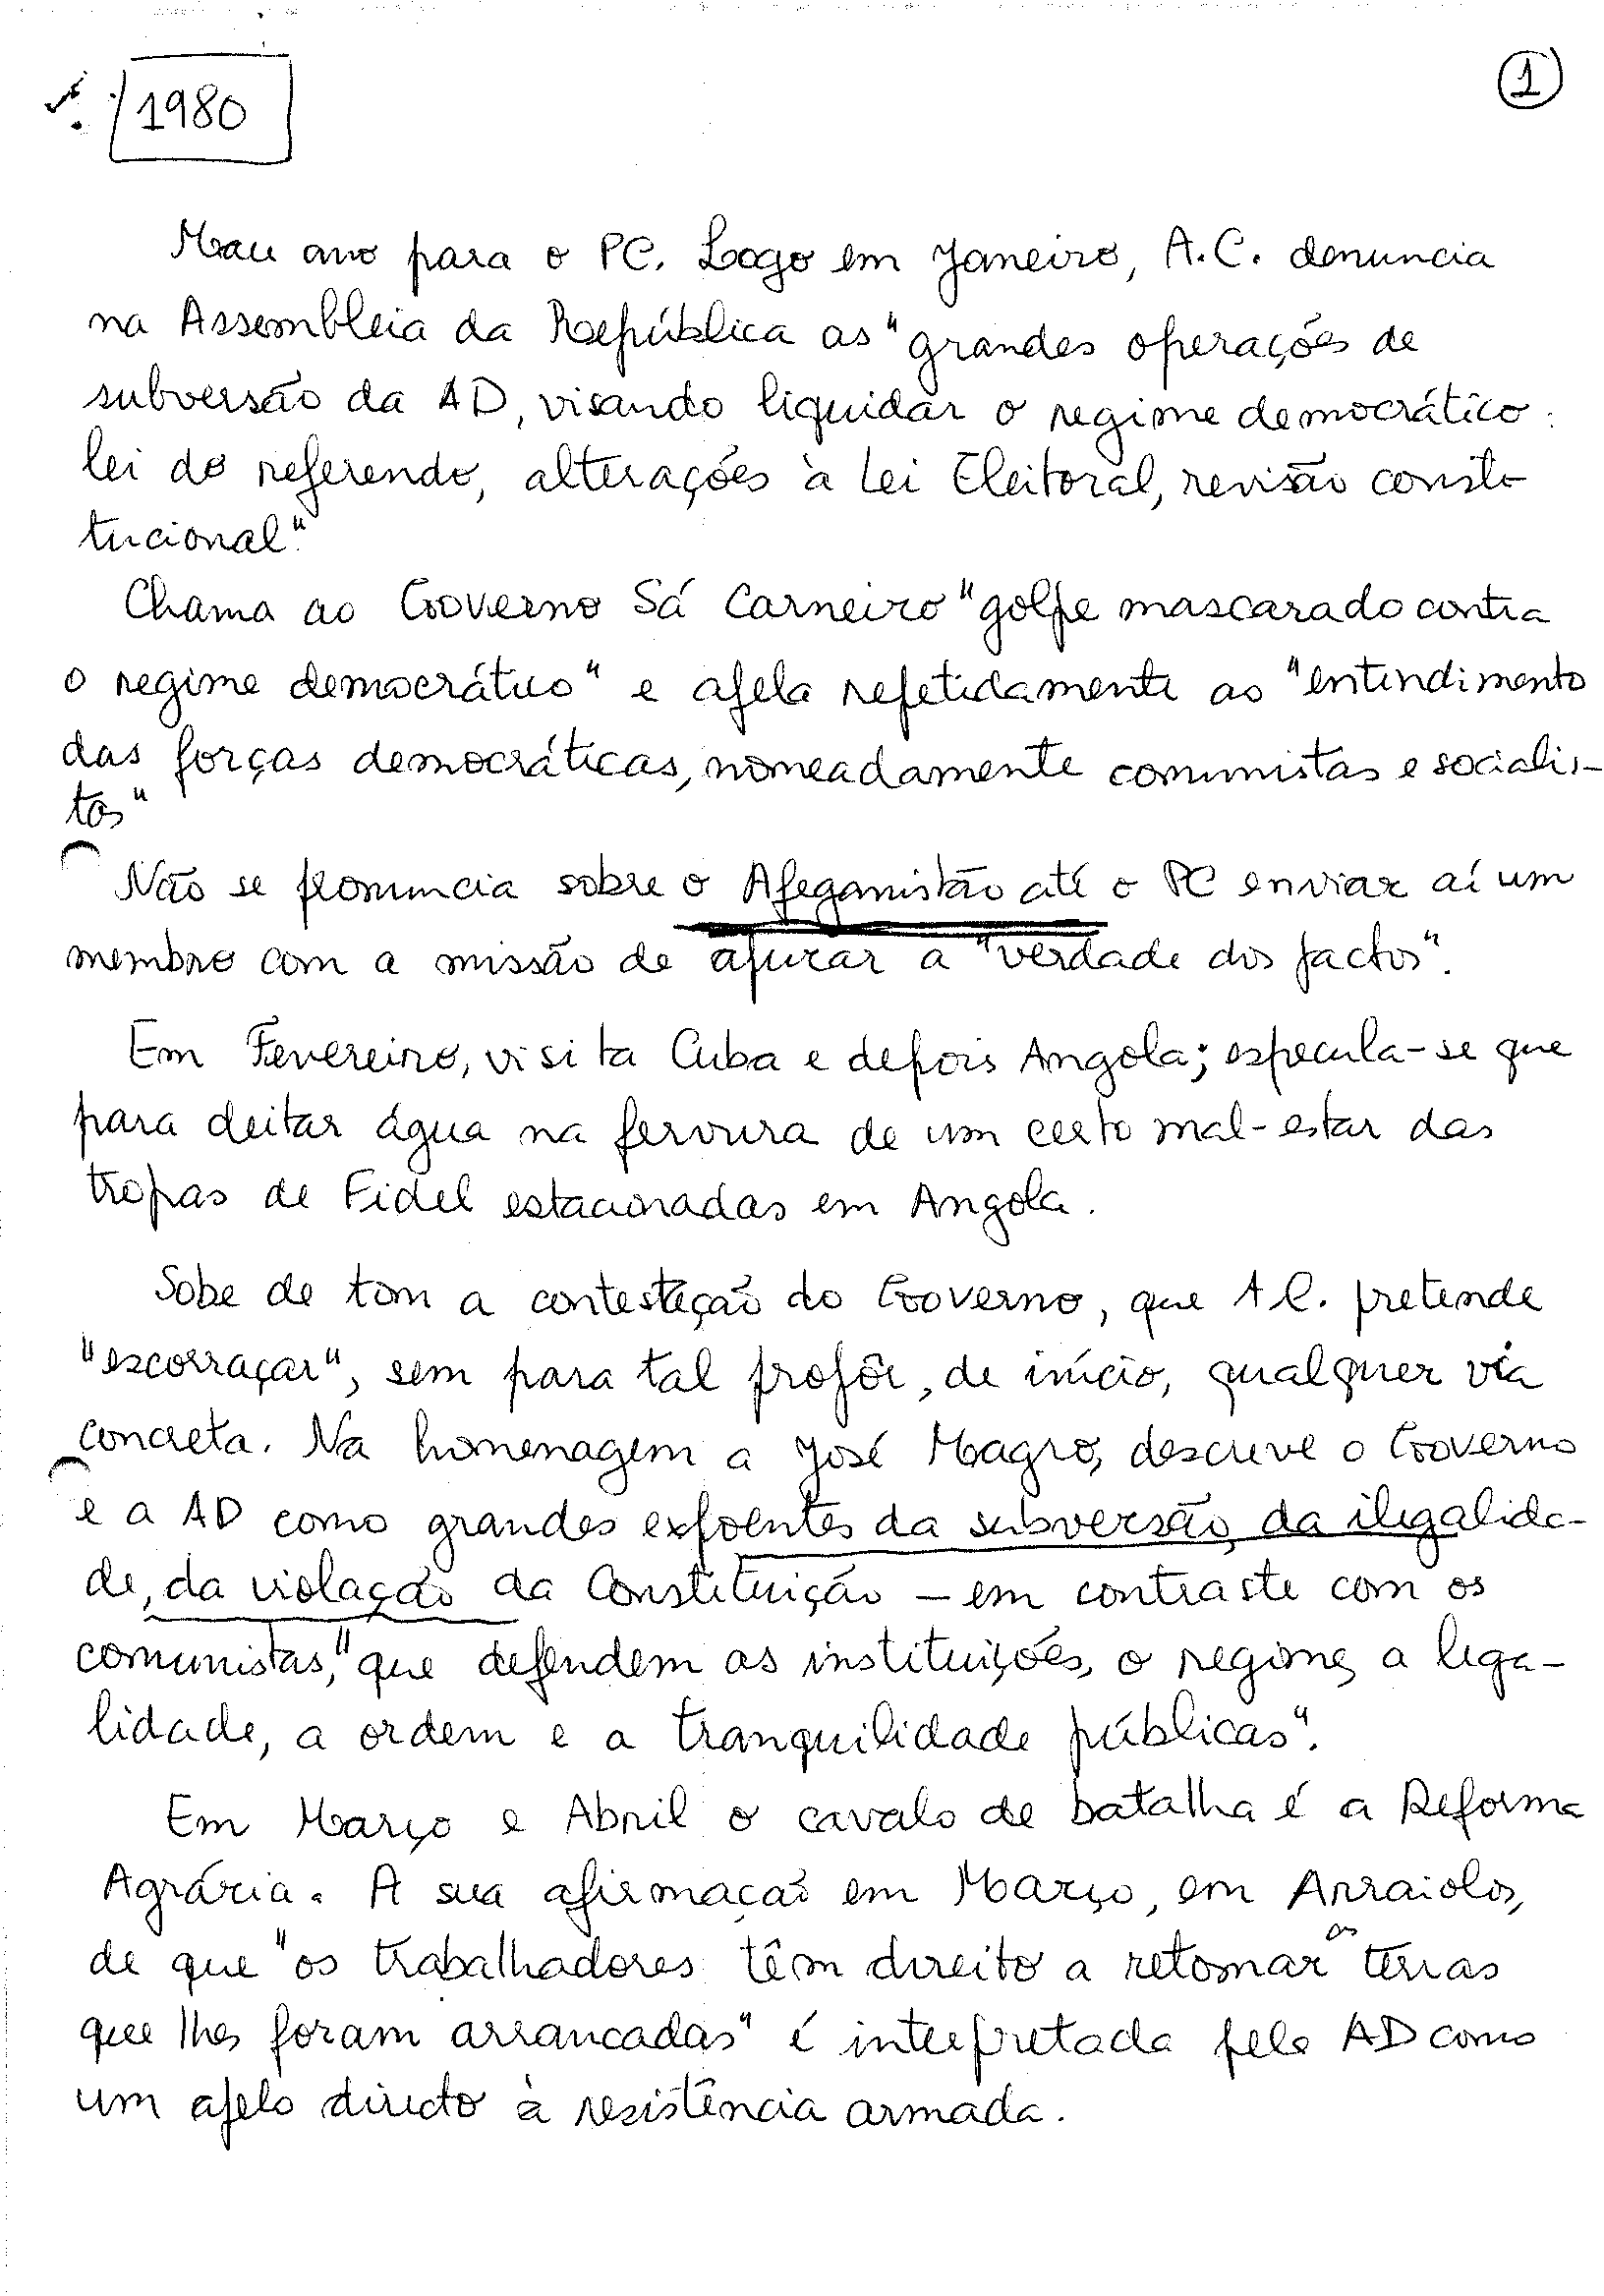 1980
1
Mau ano para o PC. Logo em Janeiro, A.C. denuncia
na Assembleia da República as "grandes operações de
subversão da AD, visando liquidar o regime democrático:
lei do referendo, alterações à Lei Eleitoral, revisão consti-
tucional".
Chama ao Governo Sá Carneiro "golpe mascarado contra
o regime democrático" e apela repetidamente ao "entendimento
das forças democráticas, nomeadamente comunistas e socialis-
tas"
Não se pronuncia sobre o Afeganistão até o PC enviar aí um
membro com a missão de apurar a "verdade dos factos".
Em Fevereiro, visita Cuba e depois Angola; especula-se que
para deitar água na fervura de um certo mal-estar das
tropas de Fidel estacionadas em Angola.
Sobe de tom a contestação do Governo, que A C. pretende
"escorraçar", sem para tal propôr, de início, qualquer via
concreta. Na homenagem a José Magro, descreve o Governo
e a AD como grandes expoentes da subversão, da ilegalida-
de, da violação da Constituição - em contraste com os
comunistas, "que defendem as instituições, o regime, a lega-
lidade, a ordem e a tranquilidade públicas".
Em Março e Abril o cavalo de batalha é a Reforma
Agrária. A sua afirmação em Março, em Arraiolos,
de que "os trabalhadores têm direito a retomar as terras
que lhes foram arrancadas" é interpretada pela AD como
um apelo directo à resistência armada.